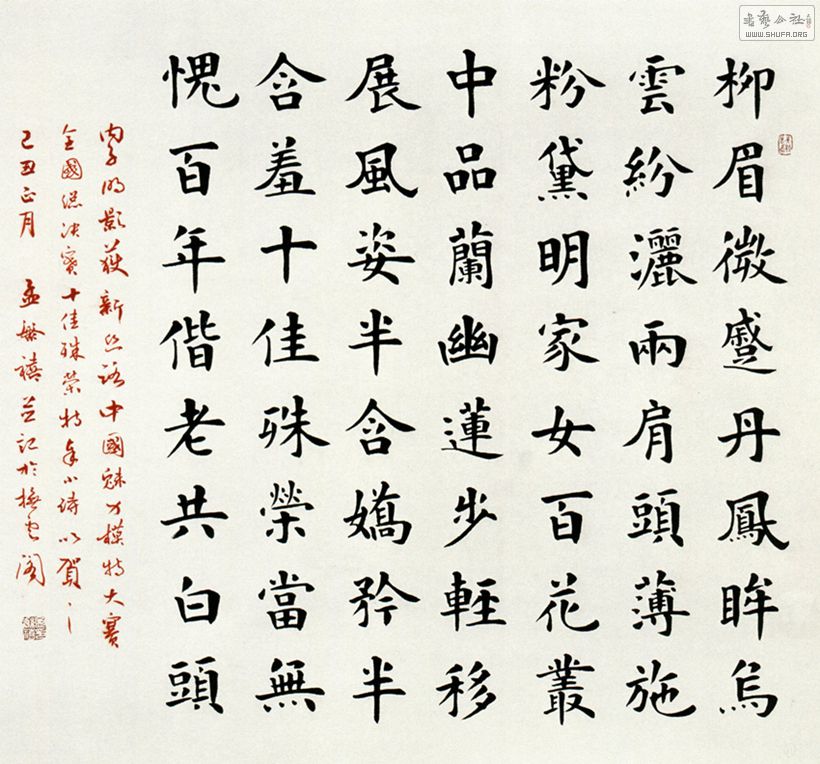 書藝公社
WWW.SHUFA.ORG
柳眉微蹙丹鳳眸烏
雲紛灑兩肩頭薄施
粉黛明家女百花叢
中品蘭幽蓮步輕移
展風姿半含嬌矜半
含羞十佳殊榮當無
愧百年偕老共白頭
内子明影获新丝路中國魅力模特大赛
全國总决赛十佳殊荣特手小诗以贺之
己丑正月 孟繁禧并记於 阁